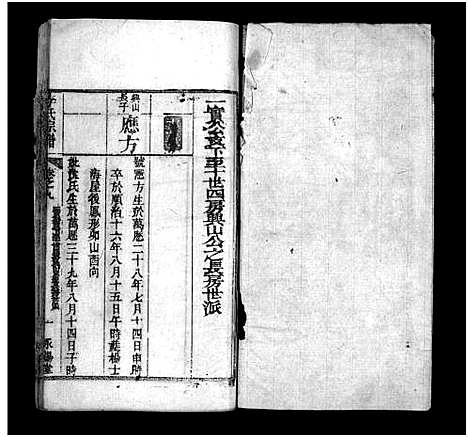 一實公房下至十世四房興山公之長房世派
興山長子
應方
號應方生於萬曆二十八年七月十四日申時
卒於順治十六年八月十五日午時葬楊士
海屋後鳳形卯山酉向
氏生於萬曆三十九年八月十四日子時
氏宗譜
卷之九
一
永陽堂